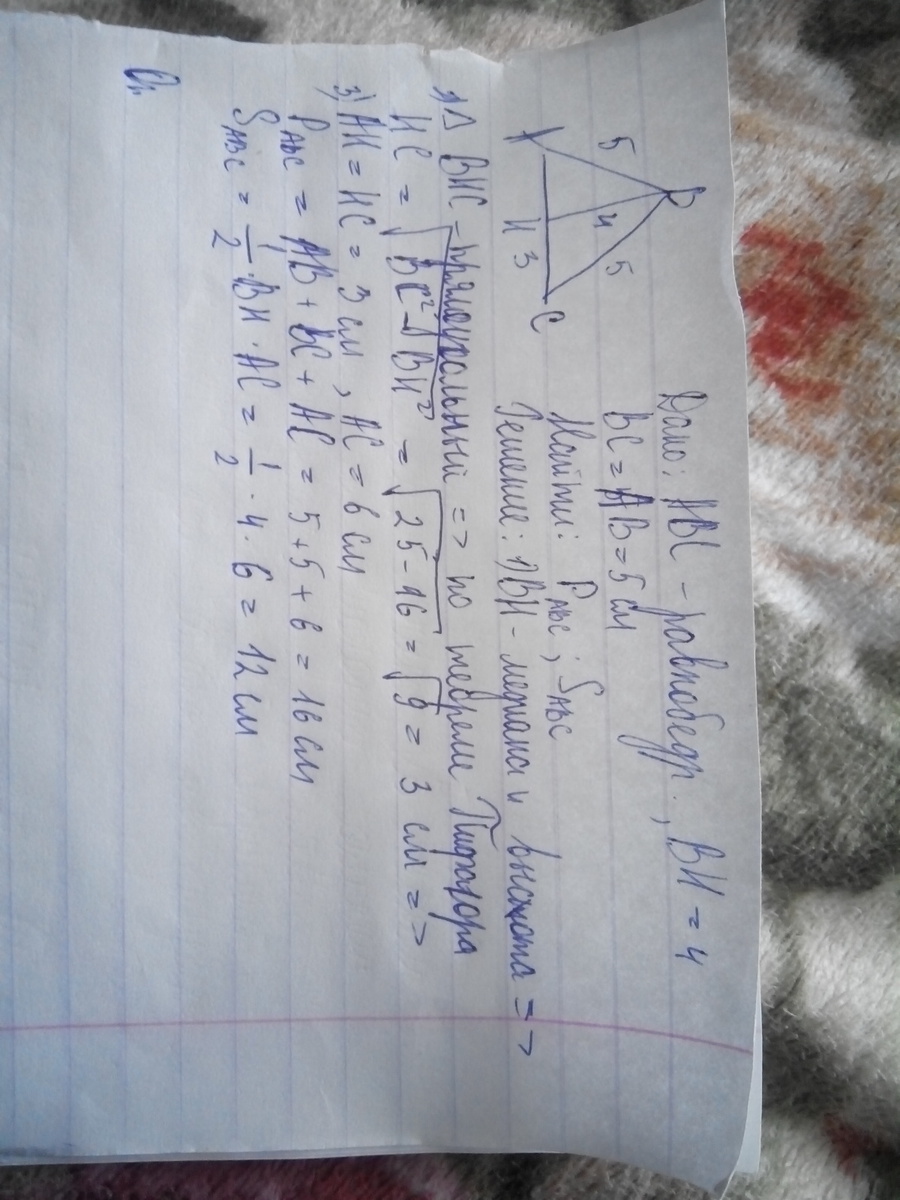 B
5
4
5
A
H
3
C
Дано: ABC - равнобедр., BH = 4
BC = AB = 5 см
Найти: P_ABC ; S_ABC
Решение: 1) BH - медиана и высота =>
Δ BHC - прямоугольный => по теореме Пифагора
HC = √BC² - BH² = √25 - 16 = √9 = 3 см =>
3) AH = HC = 3 см, AC = 6 см
P_ABC = AB + BC + AC = 5 + 5 + 6 = 16 см
S_ABC = 1/2 · BH · AC = 1/2 · 4 · 6 = 12 см